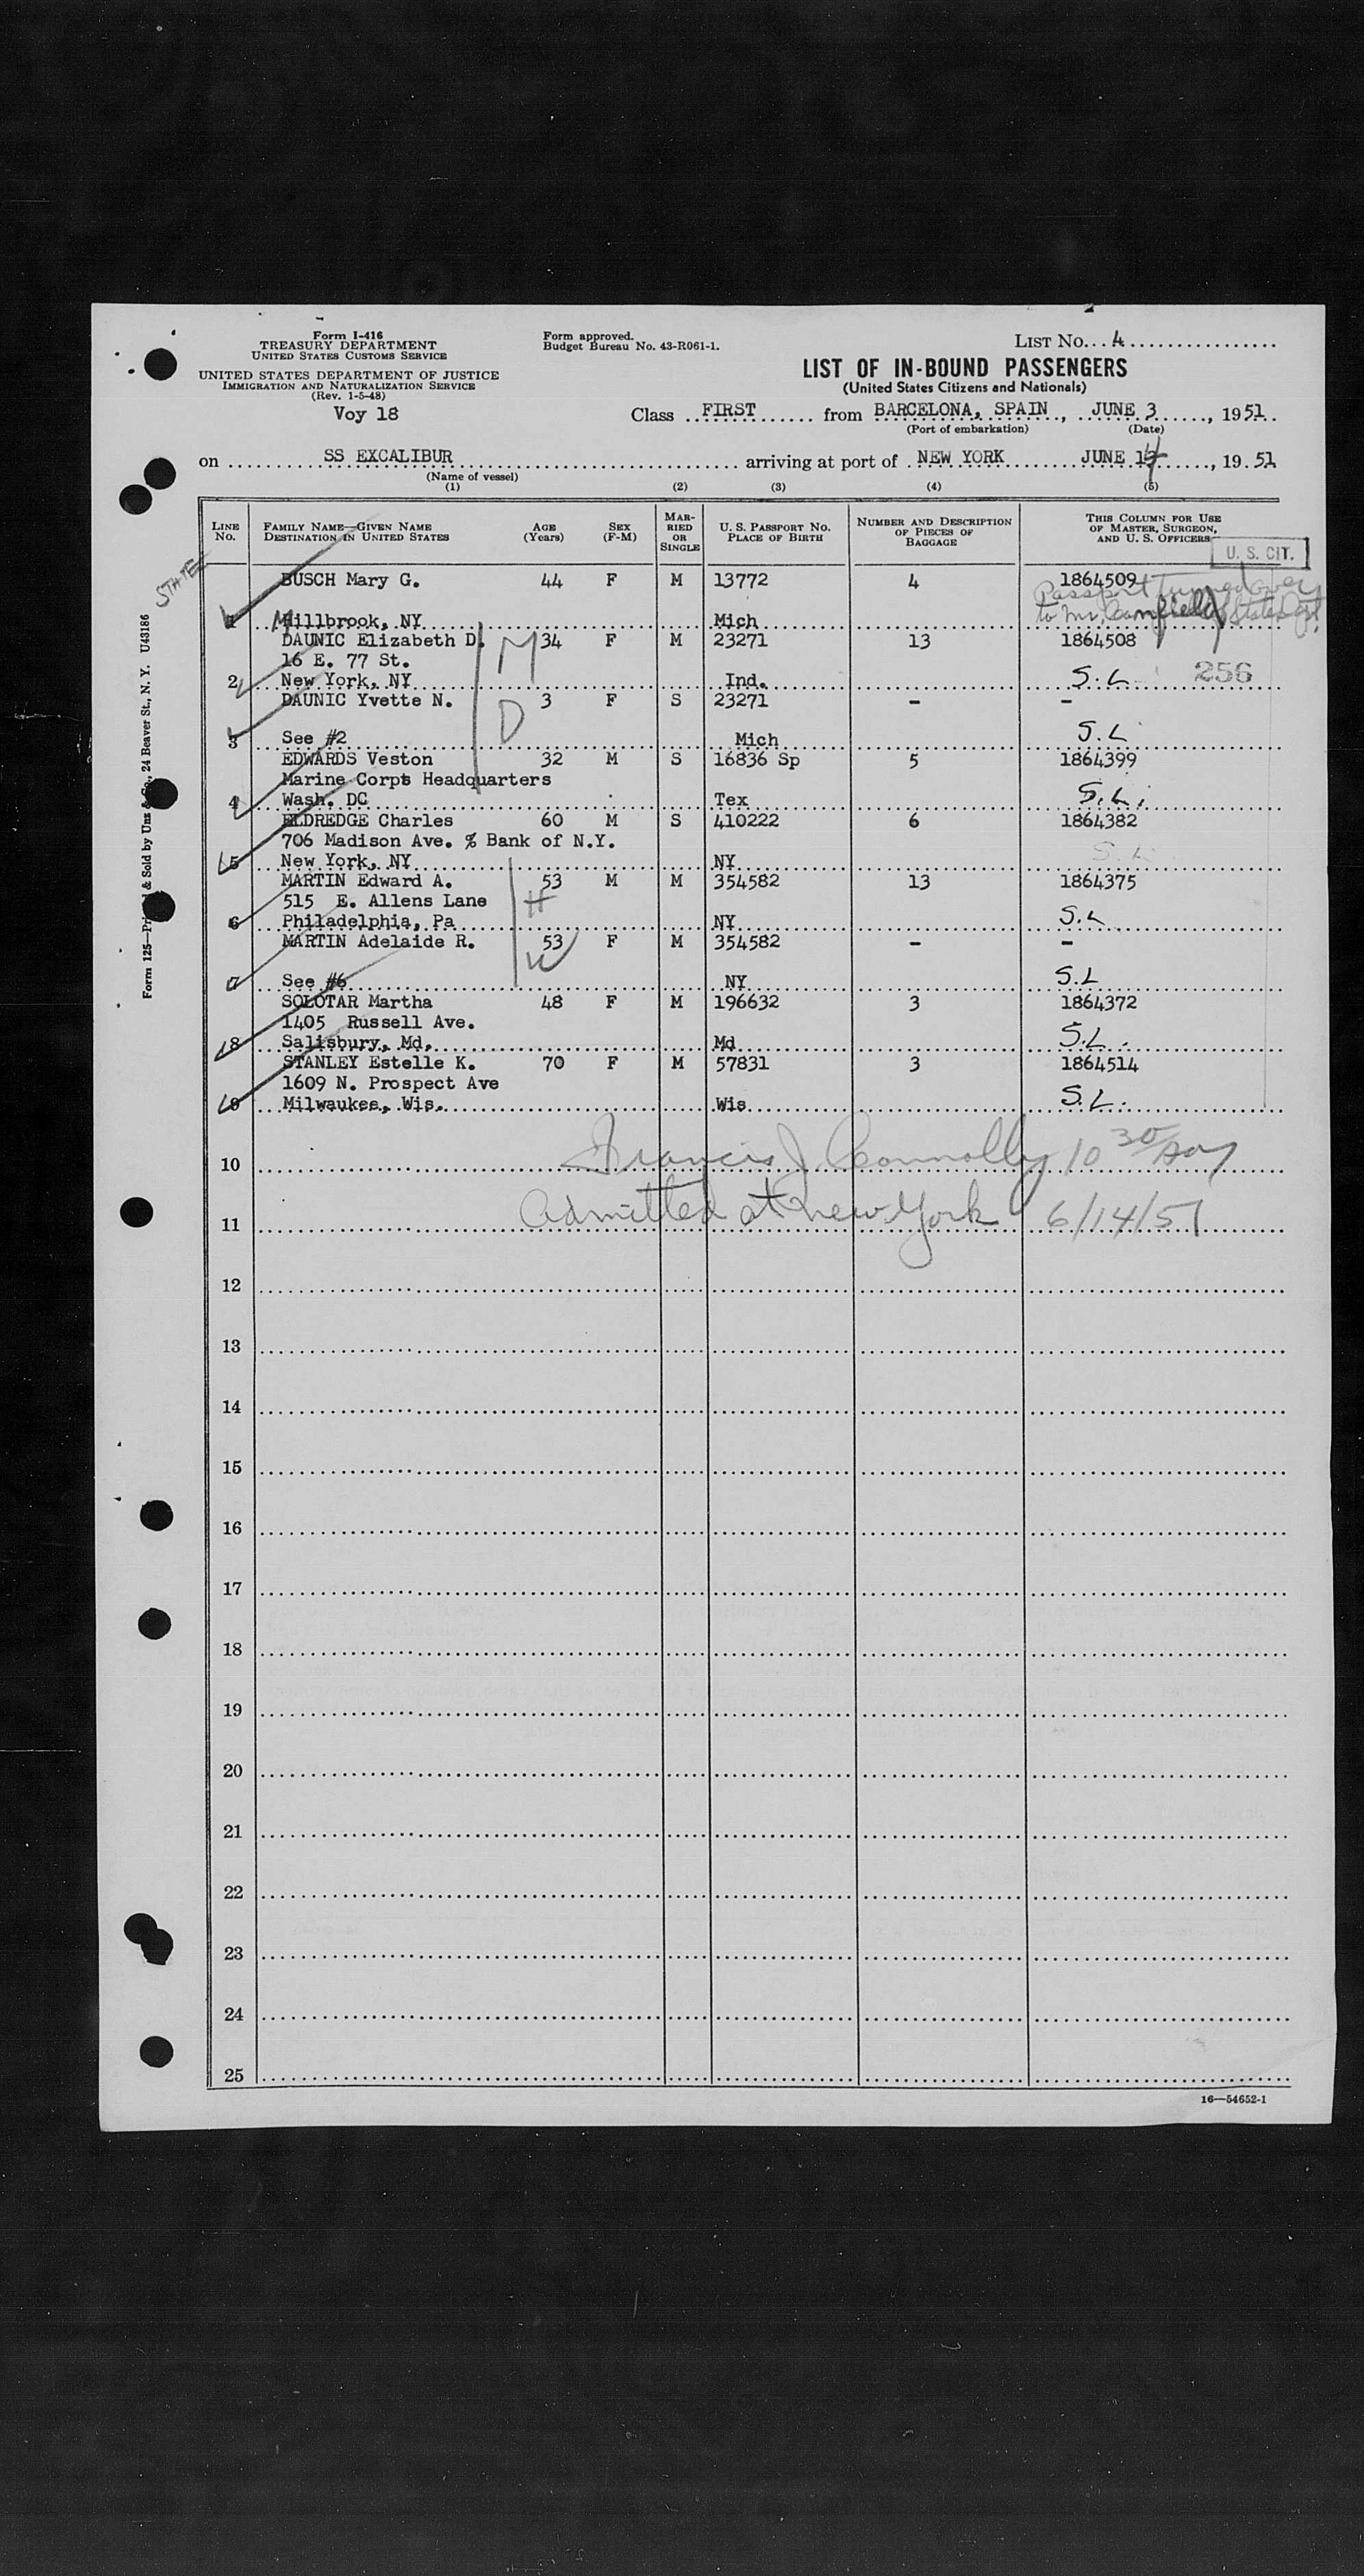 Form I-416
TREASURY DEPARTMENT
UNITED STATES CUSTOMS SERVICE
UNITED STATES DEPARTMENT OF JUSTICE
IMMIGRATION AND NATURALIZATION SERVICE
(Rev. 1-5-48)
Voy 18
Form approved.
Budget Bureau No. 43-R061-1.
LIST No. 4
LIST OF IN-BOUND PASSENGERS
(United States Citizens and Nationals)
Class FIRST from BARCELONA, SPAIN, JUNE 3, 1951
(Port of embarkation) (Date)
on SS EXCALIBUR arriving at port of NEW YORK JUNE 14, 1951
(Name of vessel)
(1) (2) (3) (4) (5)
LINE No. FAMILY NAME—GIVEN NAME DESTINATION IN UNITED STATES AGE (Years) SEX (F-M) MARRIED OR SINGLE U. S. PASSPORT NO. PLACE OF BIRTH NUMBER AND DESCRIPTION OF PIECES OF BAGGAGE THIS COLUMN FOR USE OF MASTER, SURGEON, AND U. S. OFFICERS
U. S. CIT.
STATE
BUSCH Mary G. 44 F M 13772 4 1864509
Passport turned over
to Mr. Canfield State Dpt.
1 Millbrook, NY Mich
DAUNIC Elizabeth D. 34 F M 23271 13 1864508
16 E. 77 St. M
2 New York, NY Ind. S.L. 256
DAUNIC Yvette N. 3 F S 23271 - -
D
3 See #2 Mich S.L
EDWARDS Veston 32 M S 16836 Sp 5 1864399
Marine Corps Headquarters
4 Wash. DC Tex S.L.
ELDREDGE Charles 60 M S 410222 6 1864382
706 Madison Ave. % Bank of N.Y.
5 New York, NY NY S.L
MARTIN Edward A. 53 M M 354582 13 1864375
515 E. Allens Lane H
6 Philadelphia, Pa NY S.L
MARTIN Adelaide R. 53 F M 354582 - -
W
7 See #6 NY S.L
SOLOTAR Martha 48 F M 196632 3 1864372
1405 Russell Ave.
8 Salisbury, Md. Md S.L.
STANLEY Estelle K. 70 F M 57831 3 1864514
1609 N. Prospect Ave
9 Milwaukee, Wis. Wis S.L.
10 Francis J. Connolly 10 30
11 Admitted at New York 6/14/51
12
13
14
15
16
17
18
19
20
21
22
23
24
25
16—54652-1
Form 125—Printed & Sold by Unz & Co., 24 Beaver St., N. Y. U43186